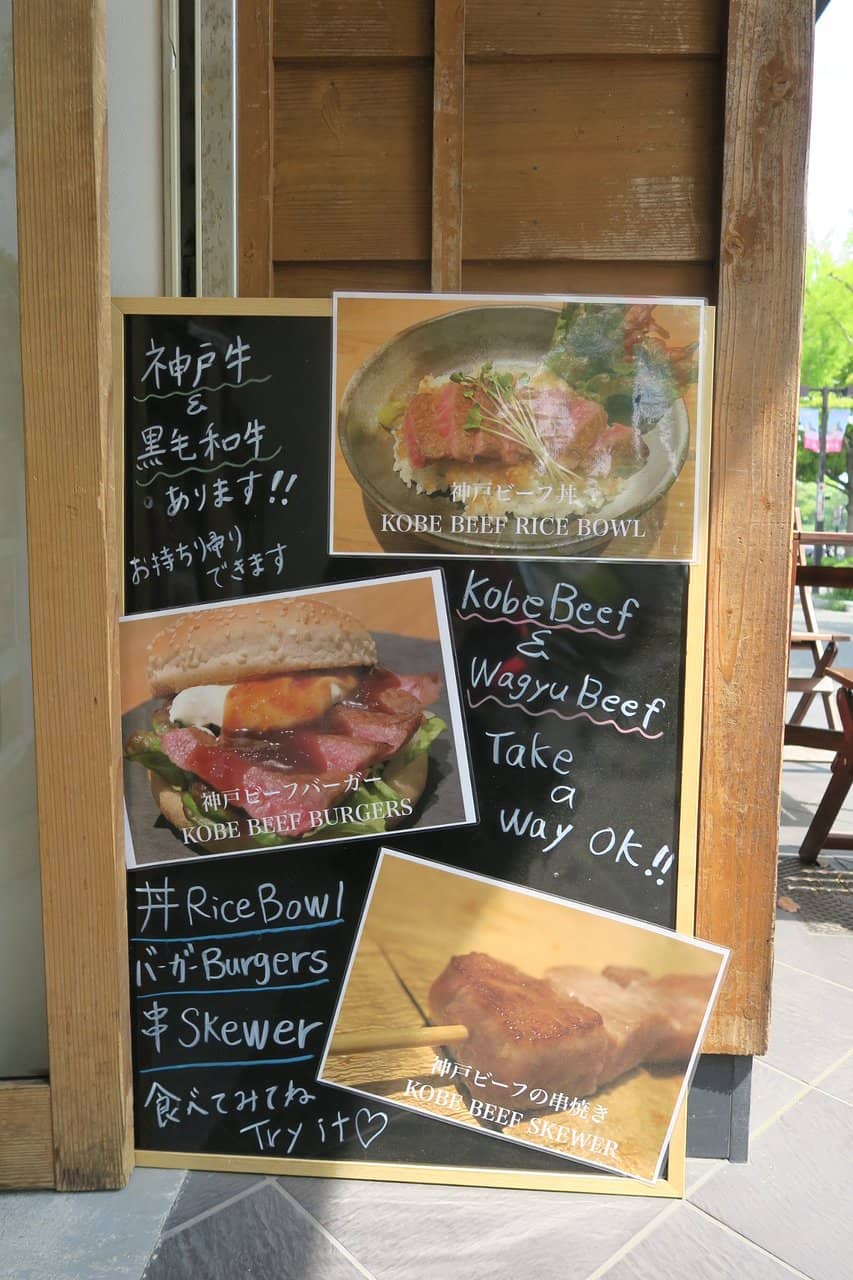 神戸牛
&
黒毛和牛
あります!!
お持ち帰り
できます
神戸ビーフ丼
KOBE BEEF RICE BOWL
Kobe Beef
&
Wagyu Beef
Take
a
way OK!!
神戸ビーフバーガー
KOBE BEEF BURGERS
丼 Rice Bowl
バーガー Burgers
串 Skewer
食べてみてね
Try it♡
神戸ビーフの串焼き
KOBE BEEF SKEWER